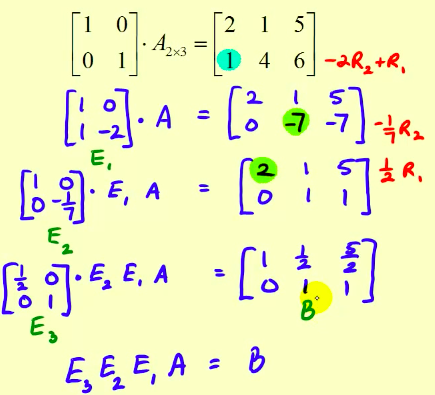 [1 0; 0 1] · A₂ₓ₃ = [2 1 5; 1 4 6] -2R₂+R₁
[1 0; 1 -2] · A = [2 1 5; 0 -7 -7] -1/7 R₂
E₁
[1 0; 0 -1/7] · E₁ A = [2 1 5; 0 1 1] 1/2 R₁
E₂
[1/2 0; 0 1] · E₂ E₁ A = [1 1/2 5/2; 0 1 1]
E₃ B
E₃ E₂ E₁ A = B